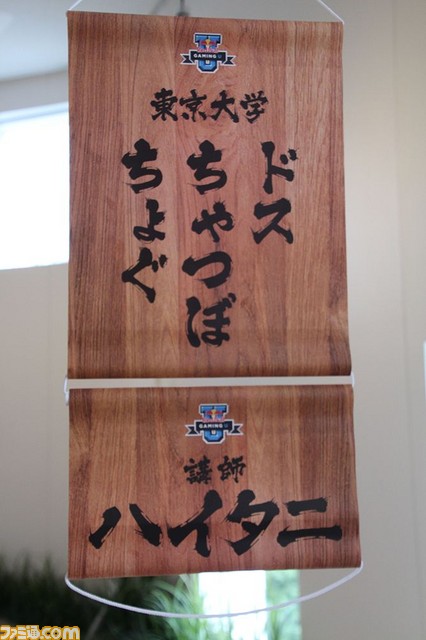 GAMING U
東京大学
ドス
ちゃつぼ
ちょぐ
GAMING U
講師
ハイタニ
ファミ通.com